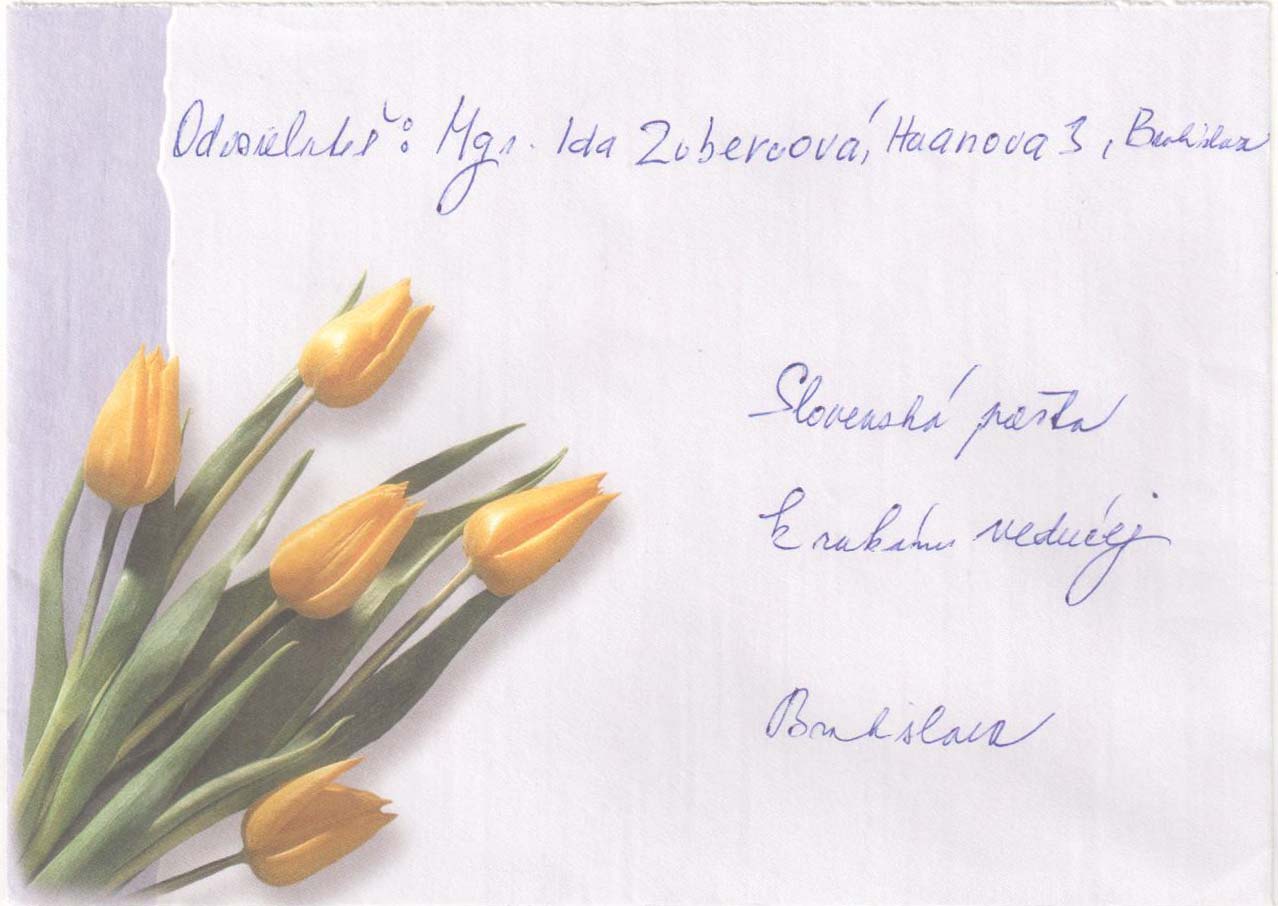 Odosielateľ: Mgr. Ida Zubercová, Haanova 3, Bratislava
Slovenská pošta
k rukám vedúcej
Bratislava